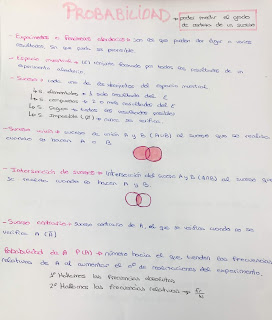 PROBABILIDAD → poder medir el grado
de certeza de un suceso
- Experimentos o fenómenos aleatorios → son los que pueden dar lugar a varios
resultados, sin que pueda ser previsible.
- Espacio muestral → (E) conjunto formado por todos los resultados de un
experimento aleatorio.
- Suceso → cada uno de los del espacio muestral.
↳ s. elementales → 1 solo resultado del E
↳ s. compuestos → 2 o más resultados del E
↳ s. Seguro → todos los resultados posibles
↳ s. Imposible (Ø) → nunca se verifica.
- Suceso unión → suceso de unión A y B (A∪B) al suceso que se realiza
cuando se hacen A o B.
- Intersección de sucesos → Intersección del suceso A y B (A∩B) al suceso que
se cuando se hacen A y B.
- Suceso contrario → Suceso contrario de A, el que se verifica cuando no se
verifica A (Ā)
Probabilidad de A P(A) → número hacia el que tienden las frecuencias
relativas de A al aumentar el nº de realizaciones del experimento.
1º Hallamos las frecuencias absolutas.
2º Hallamos las frecuencias relativas →